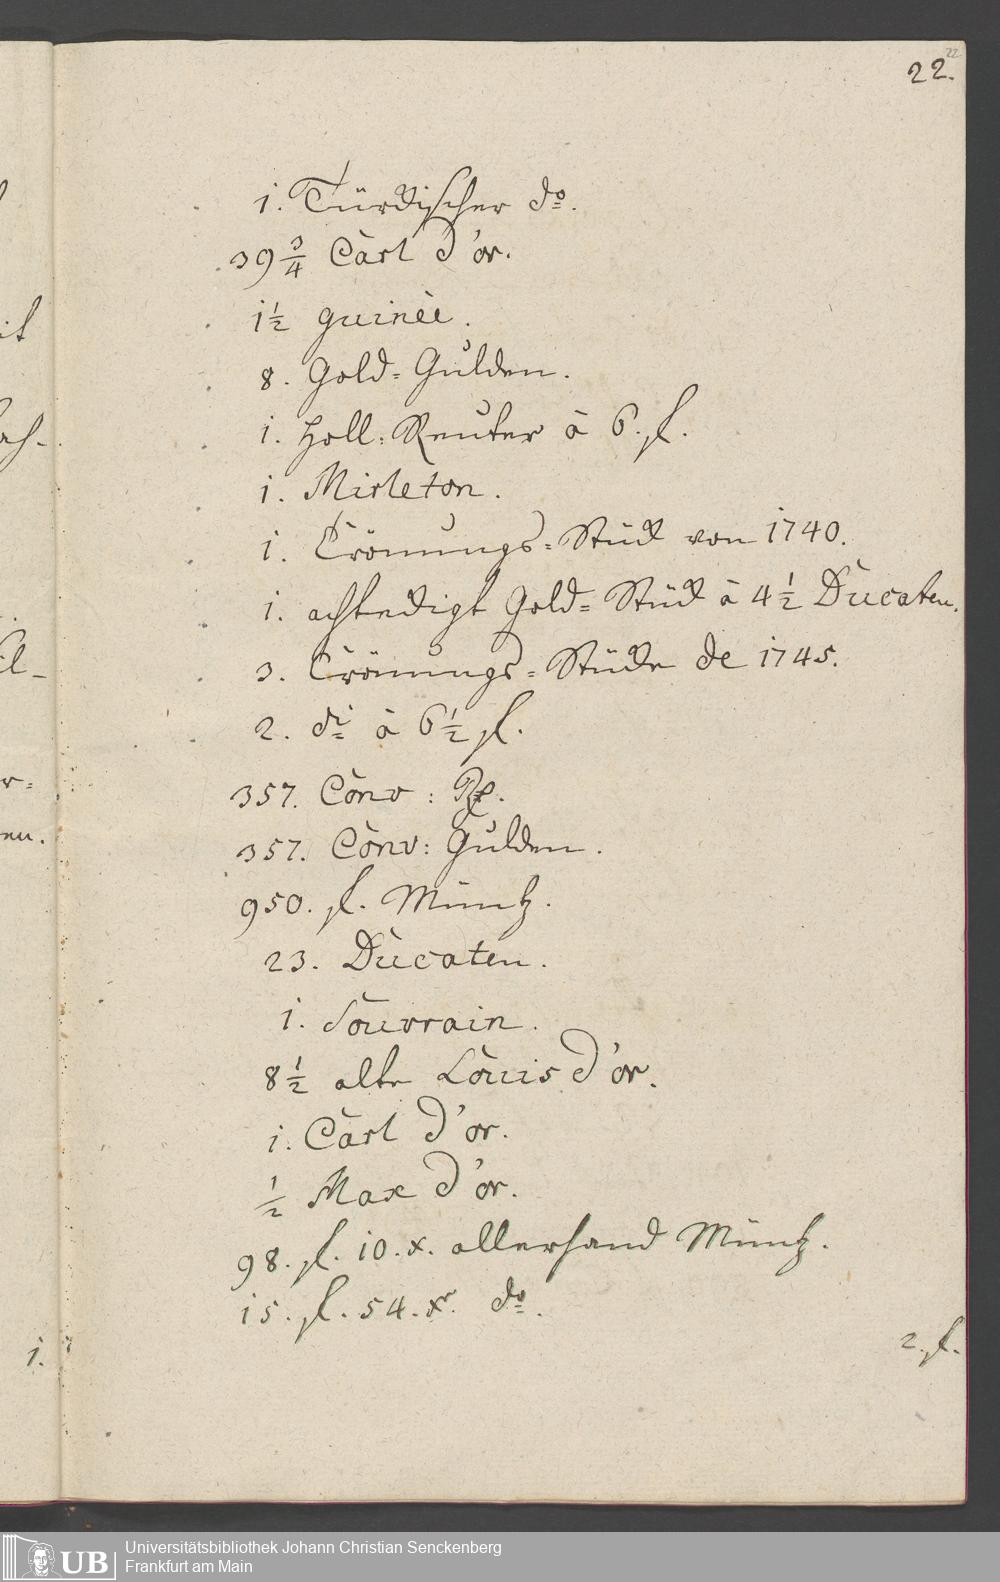 22.
1. Türckischer do.
39 3/4 Carl d'or.
1 1/2 guinèe.
8. Gold-Gulden.
1. Holl: Reuter à 6. fl.
1. Mirleton.
1. Crönungs-Stück von 1740.
1. achteckigt Gold-Stück à 4 1/2 Ducaten.
3. Crönungs-Stücke de 1745.
2. di à 6 1/2 fl.
357. Conv: Rthl.
357. Conv: Gulden.
950. fl. Müntz.
23. Ducaten.
1. Souvrain.
8 1/2 alte Louis d'or.
1. Carl d'or.
1/2 Max d'or.
98. fl. 10. x. allerhand Müntz.
15. fl. 54. xr. do.
2. fl.
1.
Universitätsbibliothek Johann Christian Senckenberg
Frankfurt am Main
UB